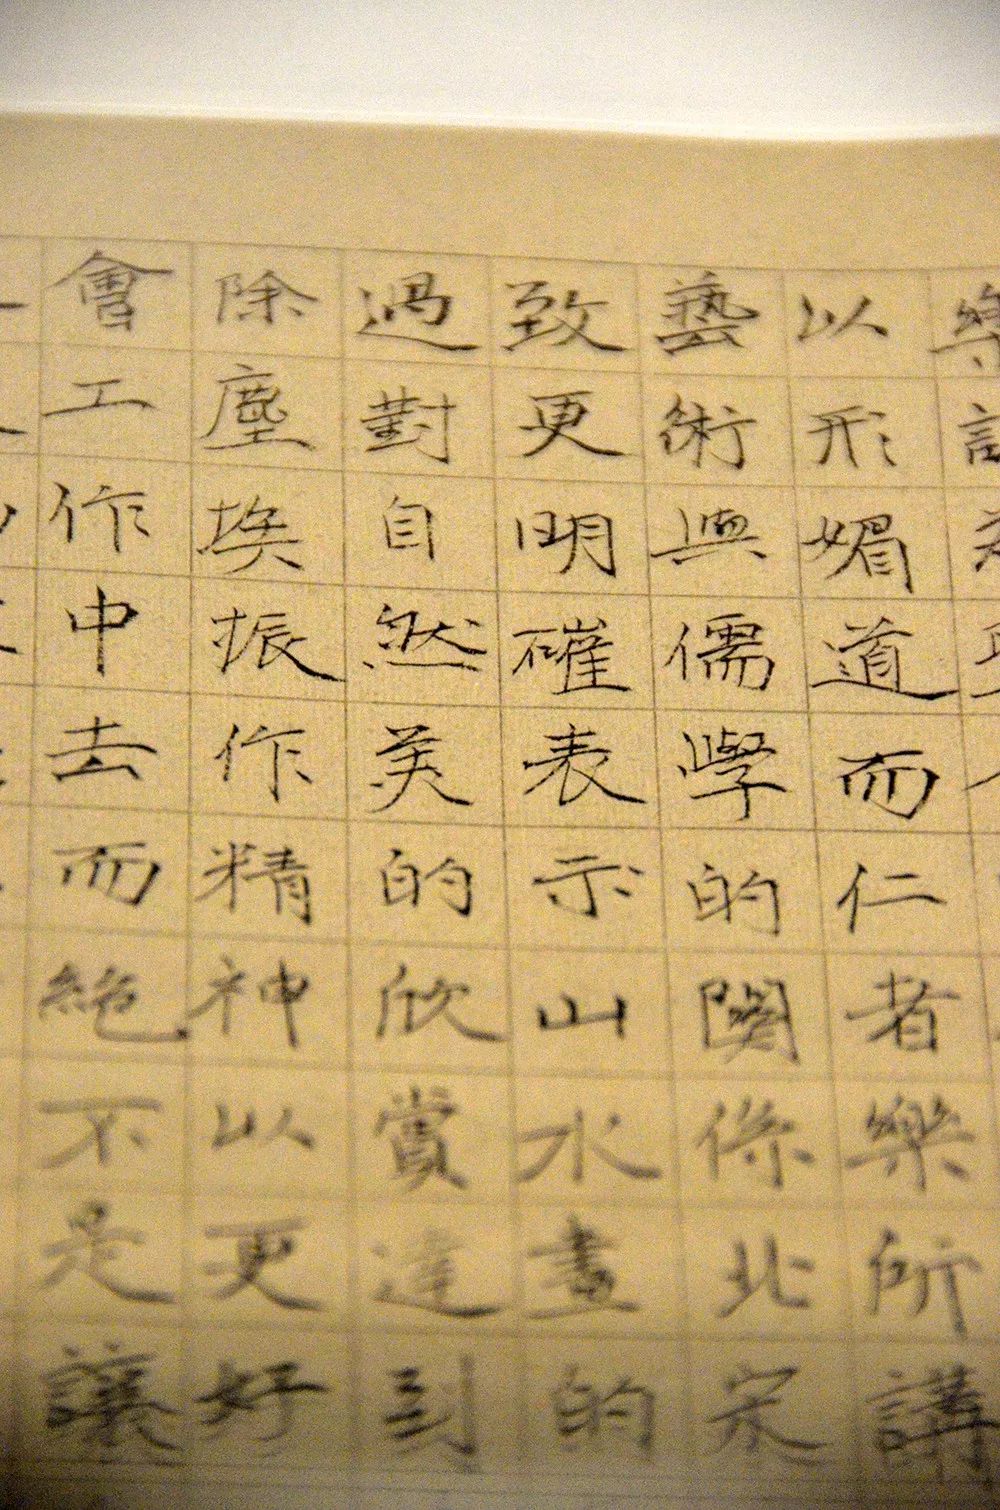 樂
以形媚道而仁者樂所講
藝術與儒學的關係北宋
致更明確表示山水畫的
過對自然美的欣賞達到
除塵埃振作精神以更好
會工作中去而絕不是讓